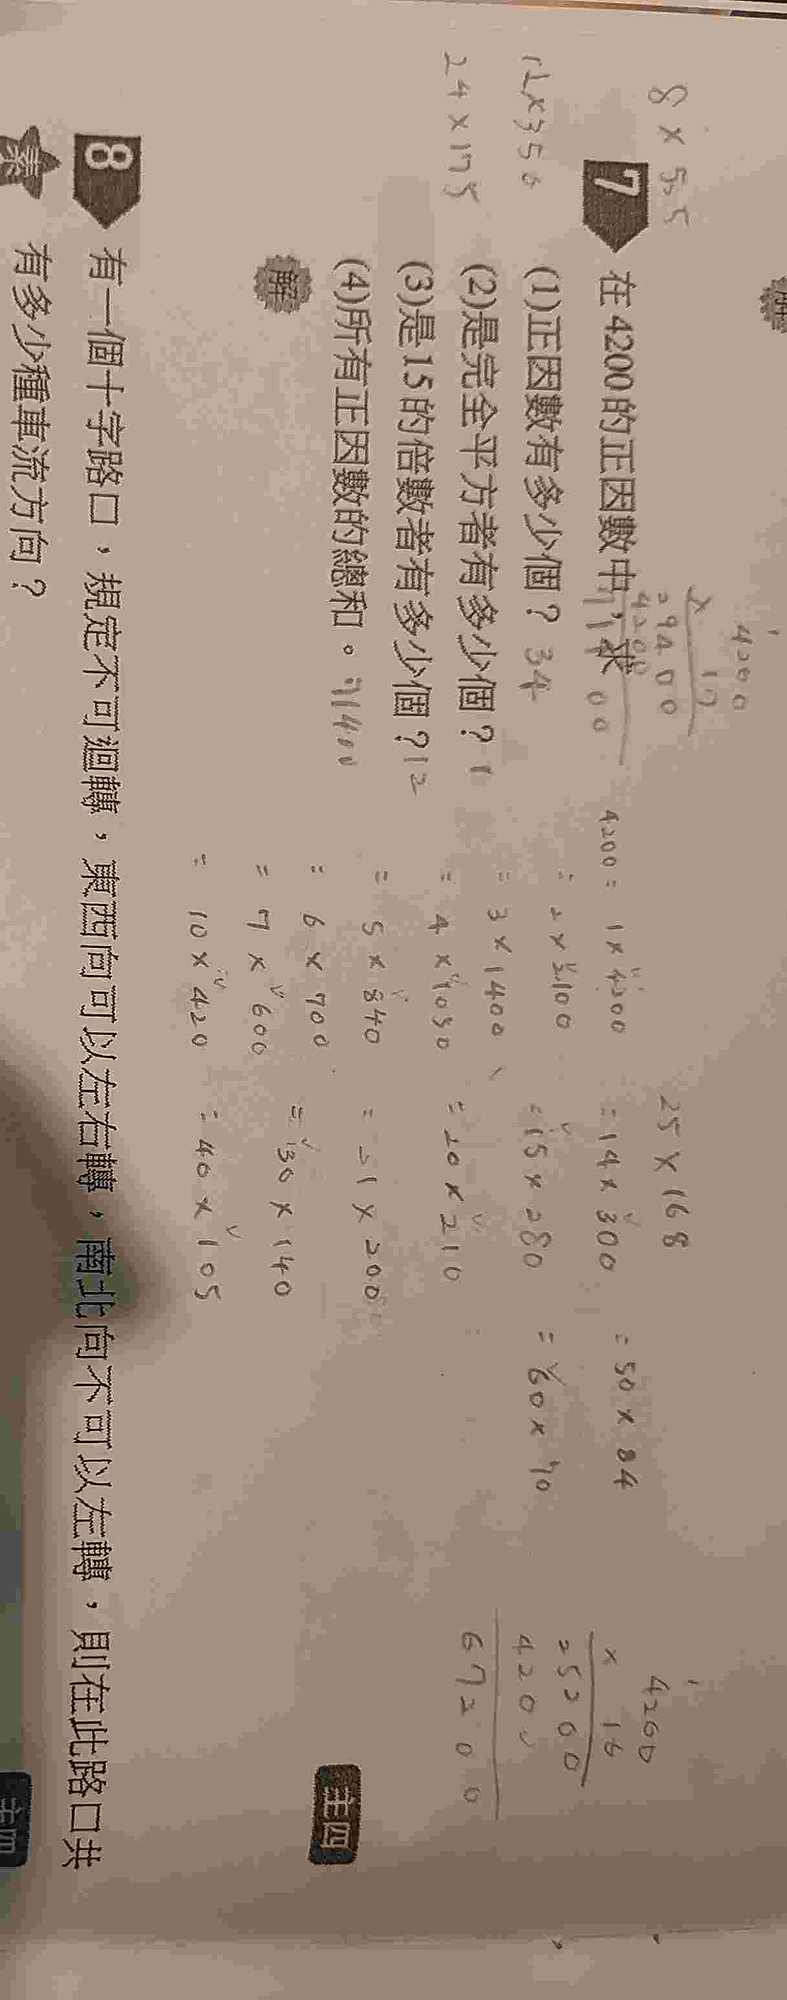 8 × 525
12×350
24×175
4200
× 17
29400
4200
71400
7
在4200的正因數中,求
(1)正因數有多少個? 34
(2)是完全平方者有多少個? 1
(3)是15的倍數者有多少個? 12
(4)所有正因數的總和。 71400
解
4200 = 1×4200
= 2×2100
= 3×1400
= 4×1050
= 5×840
= 6×700
= 7×600
= 10×420
25×168
= 14×300
= 15×280
= 20×210
= 21×200
= 30×140
= 40×105
= 50×84
= 60×70
4200
× 16
25200
4200
67200
主四
8
有一個十字路口,規定不可迴轉,東西向可以左右轉,南北向不可以左轉,則在此路口共
素
有多少種車流方向?
主四